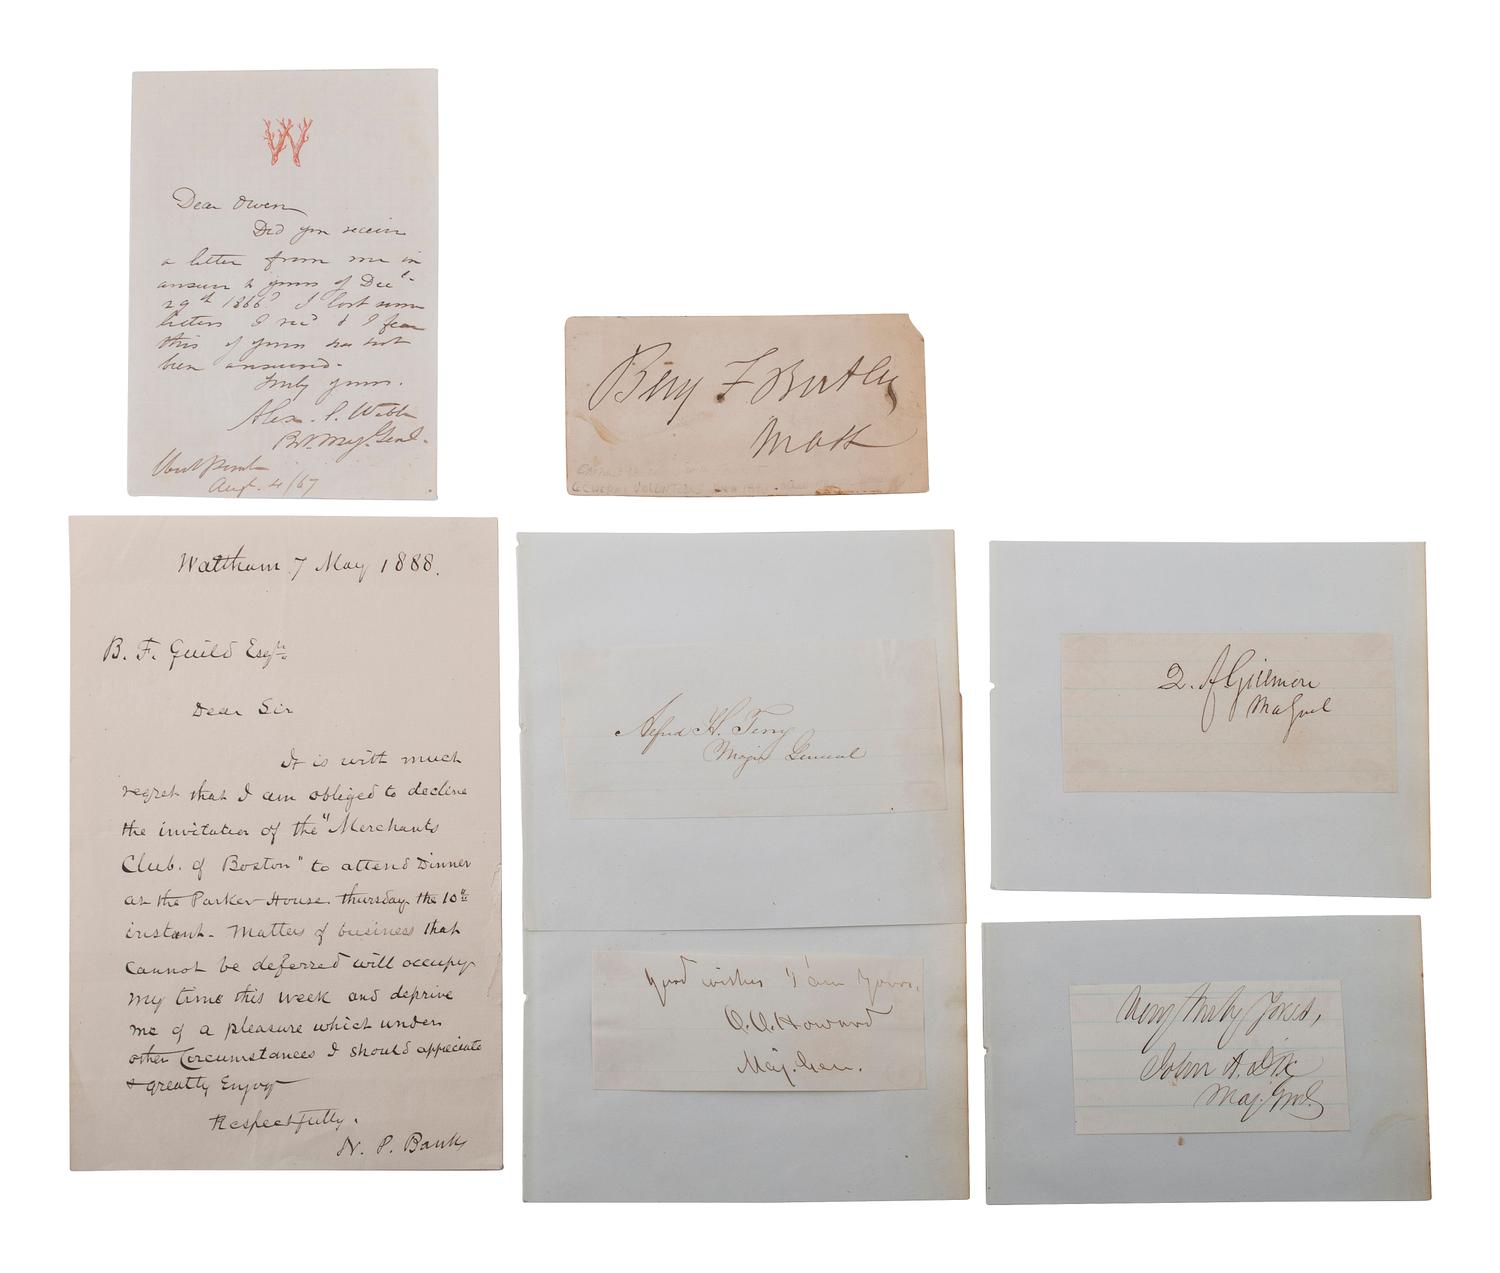 W
Dear Owen
Did you receive
a letter from me in
answer to yours of Dec
29th 1866? I lost some
letters I rec'd & I fear
this of yours has not
been answered.
Truly yours.
Alex. S. Webb
Bt. Maj. Genl.
West Point
Augt. 4/67
Benj F Butler
Mass
GENERAL VOLUNTEERS
Waltham 7 May 1888.
B. F. Guild Esqr.
Dear Sir
It is with much
regret that I am obliged to decline
the invitation of the "Merchants
Club. of Boston" to attend Dinner
at the Parker House thursday the 10th
instant. Matters of business that
cannot be deferred will occupy
my time this week and deprive
me of a pleasure which under
other Circumstances I should appreciate
& greatly Enjoy
Respectfully.
N. P. Banks
Alfred H. Terry
Major General
good wishes I am Yours,
O. O. Howard
Maj. Gen.
Q. A Gillmore
Maj Genl
Very truly Yours,
John A. Dix
Maj. Genl.